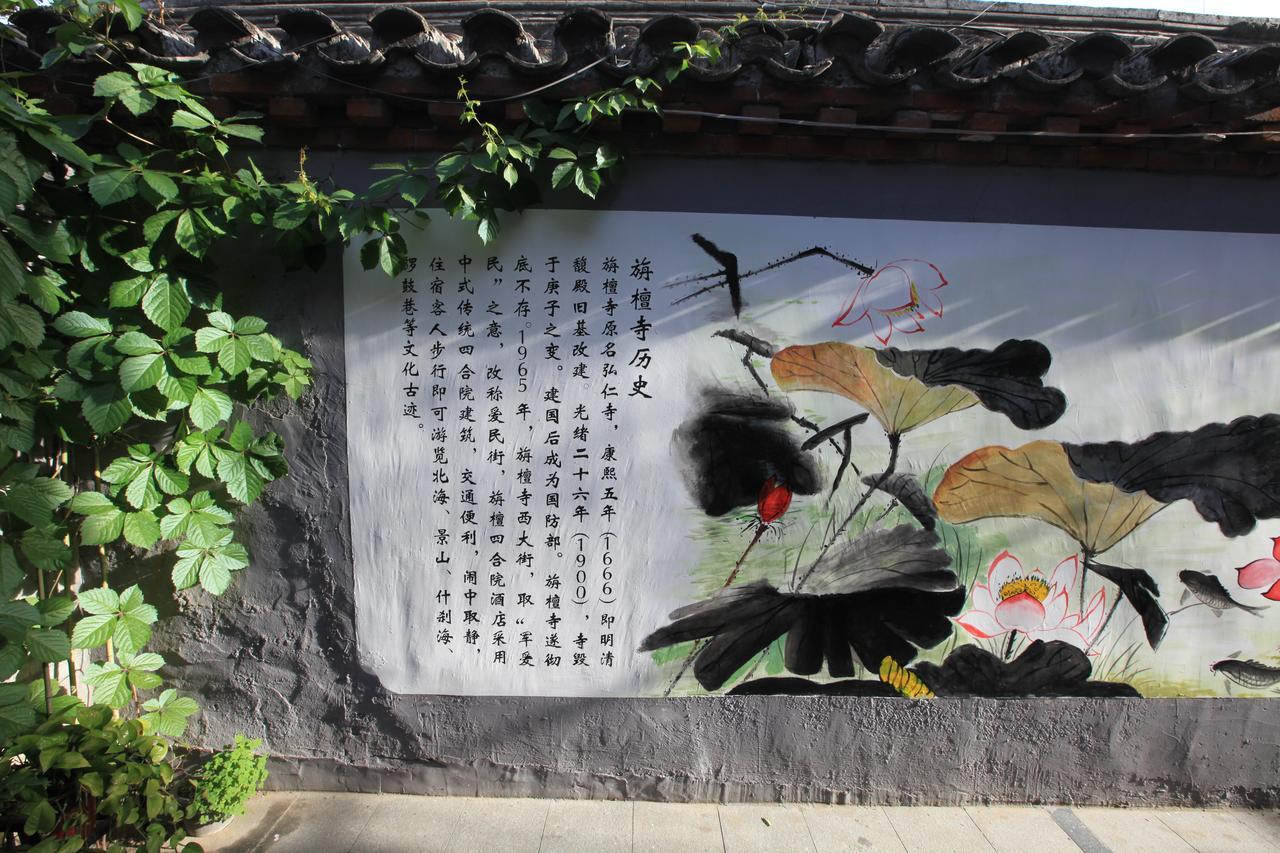 旃檀寺历史
旃檀寺原名弘仁寺，康熙五年(1666)即明清
馥殿旧基改建。光绪二十六年(1900)，寺毁
于庚子之变。建国后成为国防部。旃檀寺遂彻
底不存。1965年，旃檀寺西大街，取“军爱
民”之意，改称爱民街，旃檀四合院酒店采用
中式传统四合院建筑，交通便利，闹中取静，
住宿客人步行即可游览北海、景山、什刹海、
锣鼓巷等文化古迹。